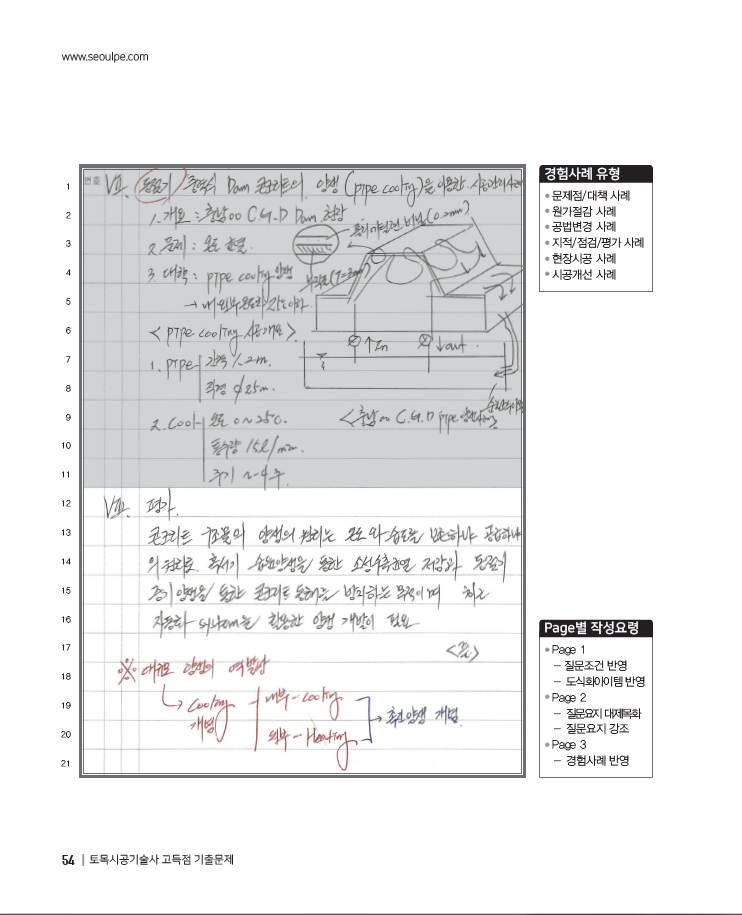 www.seoulpe.com
번호
1
2
3
4
5
6
7
8
9
10
11
12
13
14
15
16
17
18
19
20
21
Ⅶ. 동절기 중력식 Dam 콘크리트의 양생 (pipe cooling)을 이용한 시공관리사례
1. 개요 : 충남 00 C.G.D Dam 현장
2. 문제 : 온도 균열.
3. 대책 : pipe cooling 양생
→ 내·외부 온도차
(0.2mm)
< pipe cooling 시공개요 >
↑In
↓out
1. pipe 간격 1~2m.
직경 ∅25m.
2. Cool 온도 0~25℃.
통수량 15ℓ/min.
주기 2~4주.
<충남 00 C.G.D pipe 양생>
Ⅷ. 평가.
콘크리트 구조물의 양생의 원리는 온도와 습도를 보존하냐 공급하냐
의 원리로 혹서기 습윤양생을 통한 소성수축균열 저감과 동절기
증기양생을 통한 콘크리트 동해를 방지하는 목적이며 최근
자동화 system을 활용한 양생 개발이 필요
<끝>
※ 대규모 양생의 역발상
→ Cooling 개념
내부 - cooling
외부 - Heating
→ 촉진양생 개념.
경험사례 유형
• 문제점/대책 사례
• 원가절감 사례
• 공법변경 사례
• 지적/점검/평가 사례
• 현장시공 사례
• 시공개선 사례
Page별 작성요령
• Page 1
– 질문조건 반영
– 도식화아이템 반영
• Page 2
– 질문요지 대제목화
– 질문요지 강조
• Page 3
– 경험사례 반영
54 | 토목시공기술사 고득점 기출문제